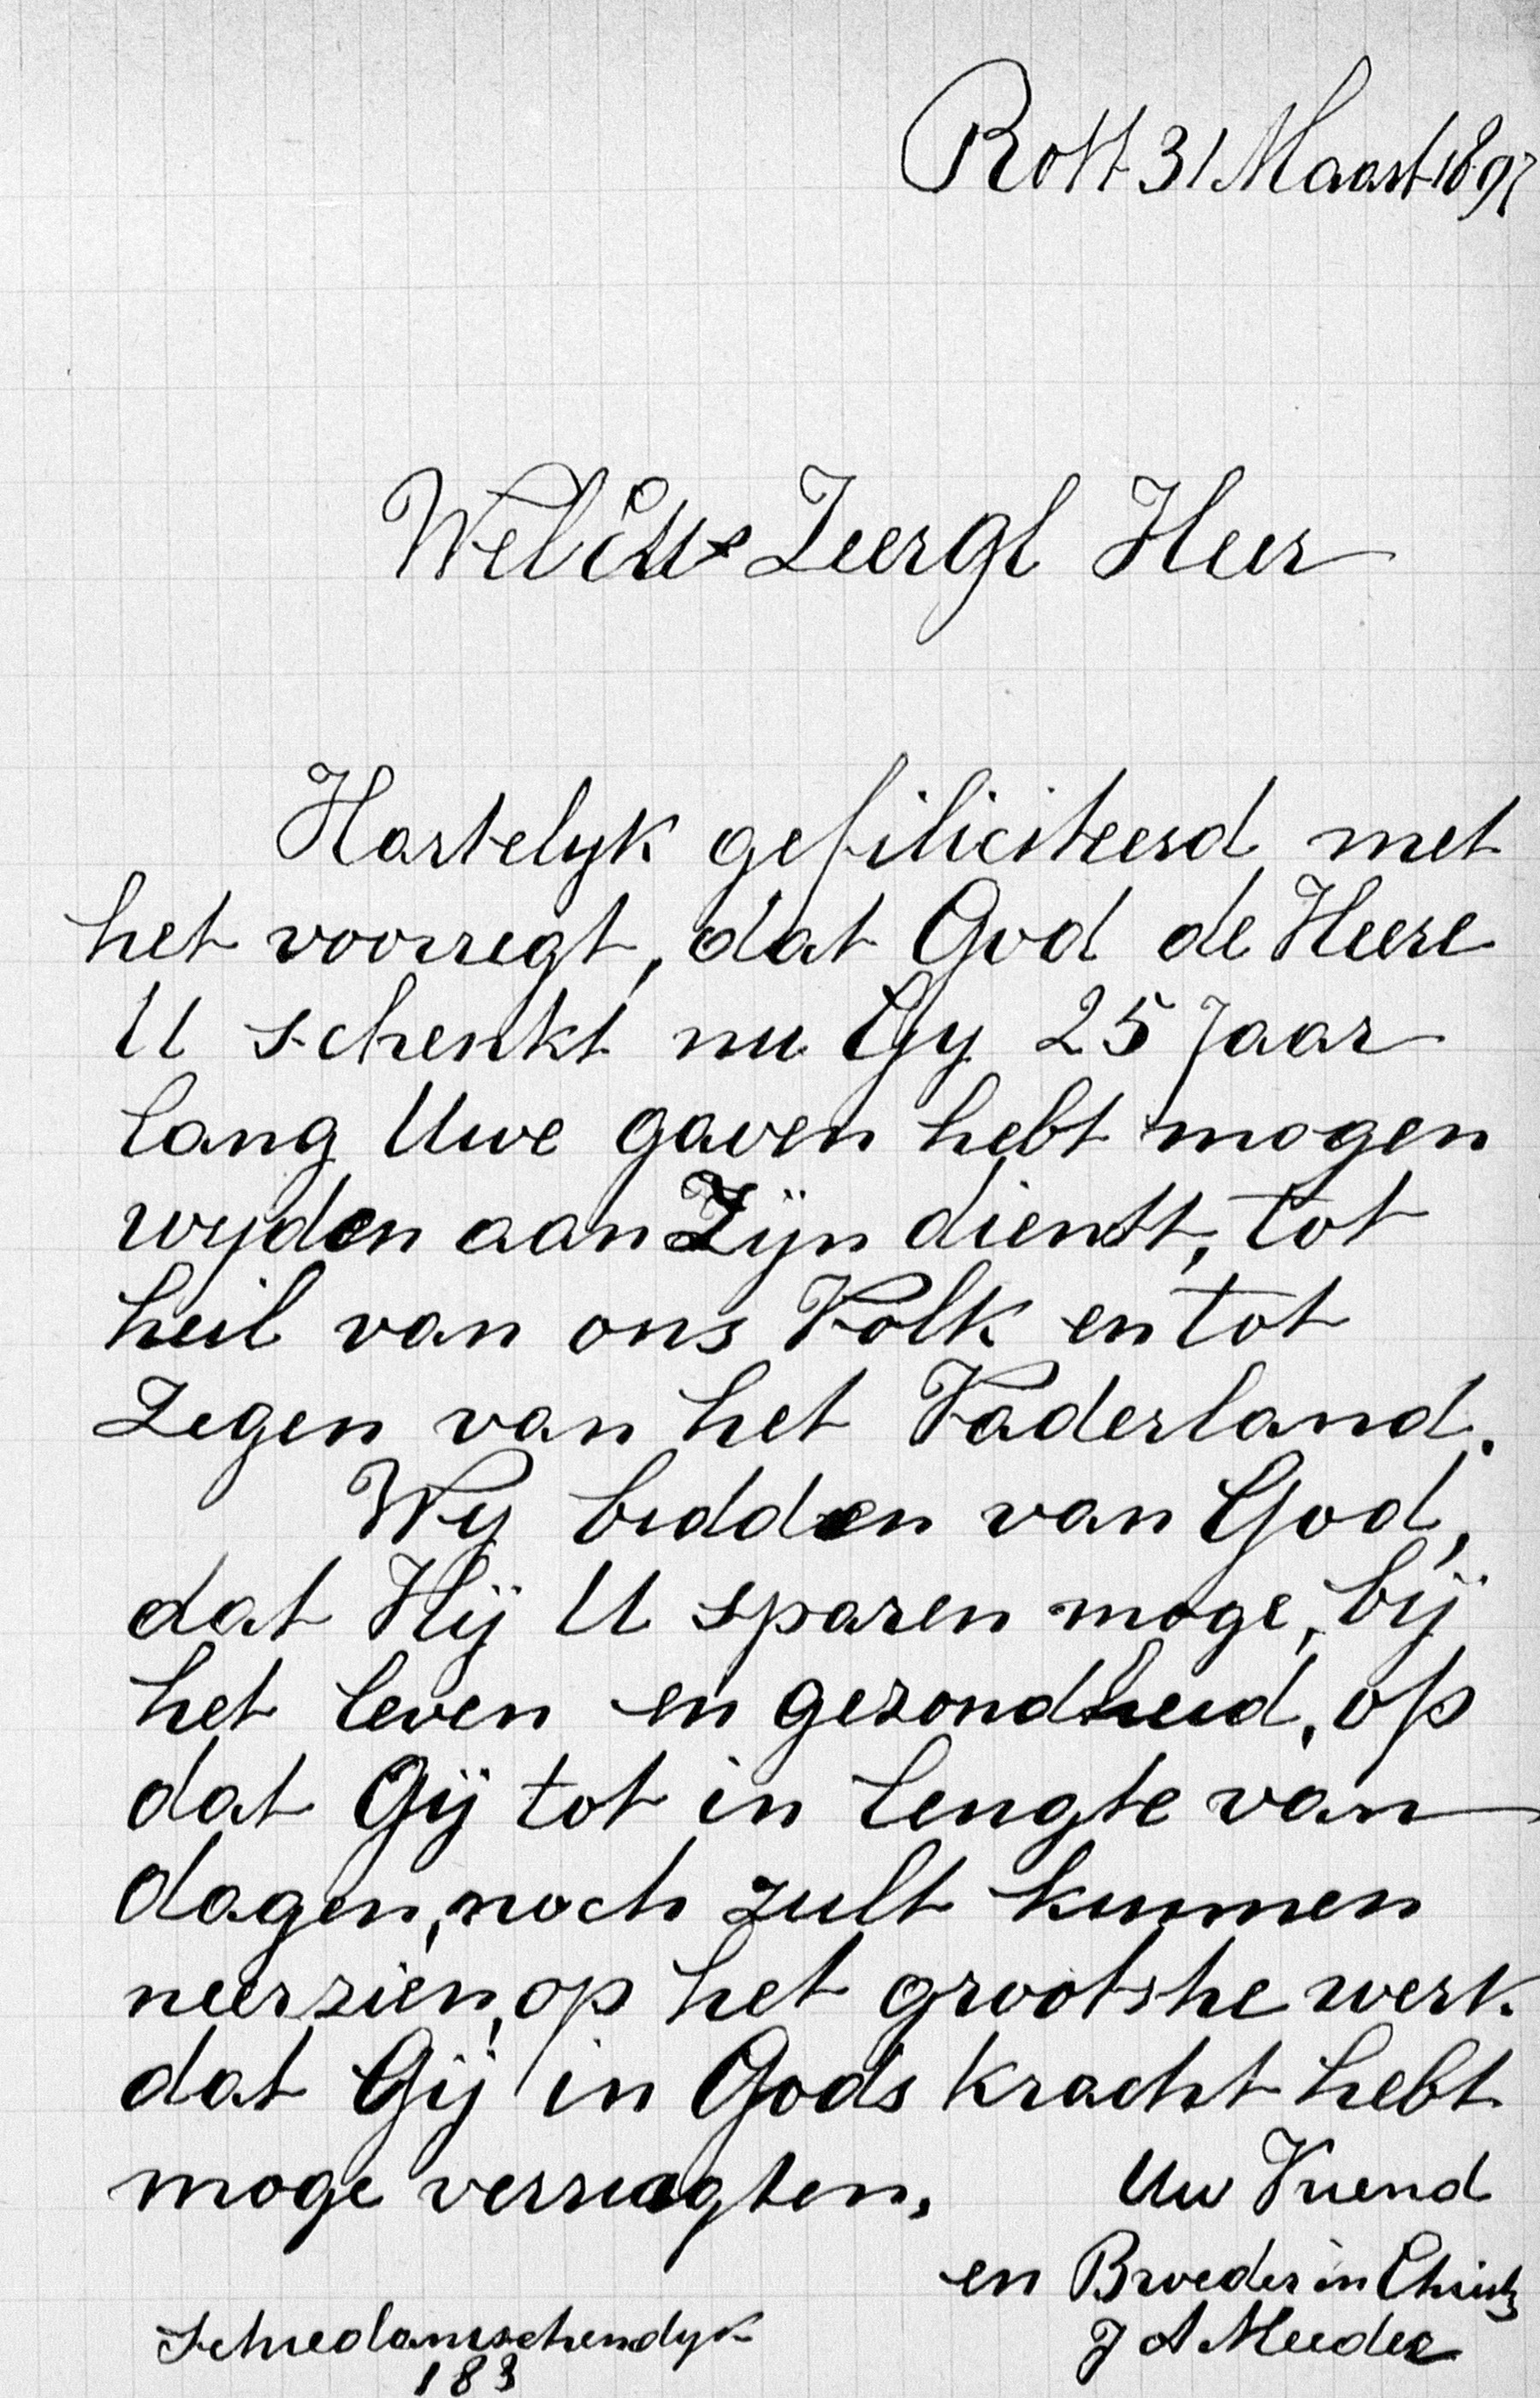 Rott 31 Maart 1897
Zeergl Heer
Hartelyk gefiliciteerd met
het voorregt, dat God de Heere
U schenkt nu Gy 25 Jaar
lang Uwe gaven hebt mogen
wyden aan Zijn dienst, tot
heil van ons Volk en tot
Zegen van het Vaderland.
Wy bidden van God,
dat Hij U sparen moge, bij
het leven en gezondheid, op
dat Gij tot in lengte van
dagen, noch zult kunnen
neerzien, op het grootshe werk
dat Gij in Gods kracht hebt
moge verrigten, Uw Vriend
en Broeder in Christ
J A Meeder
Schiedamschendyk
183